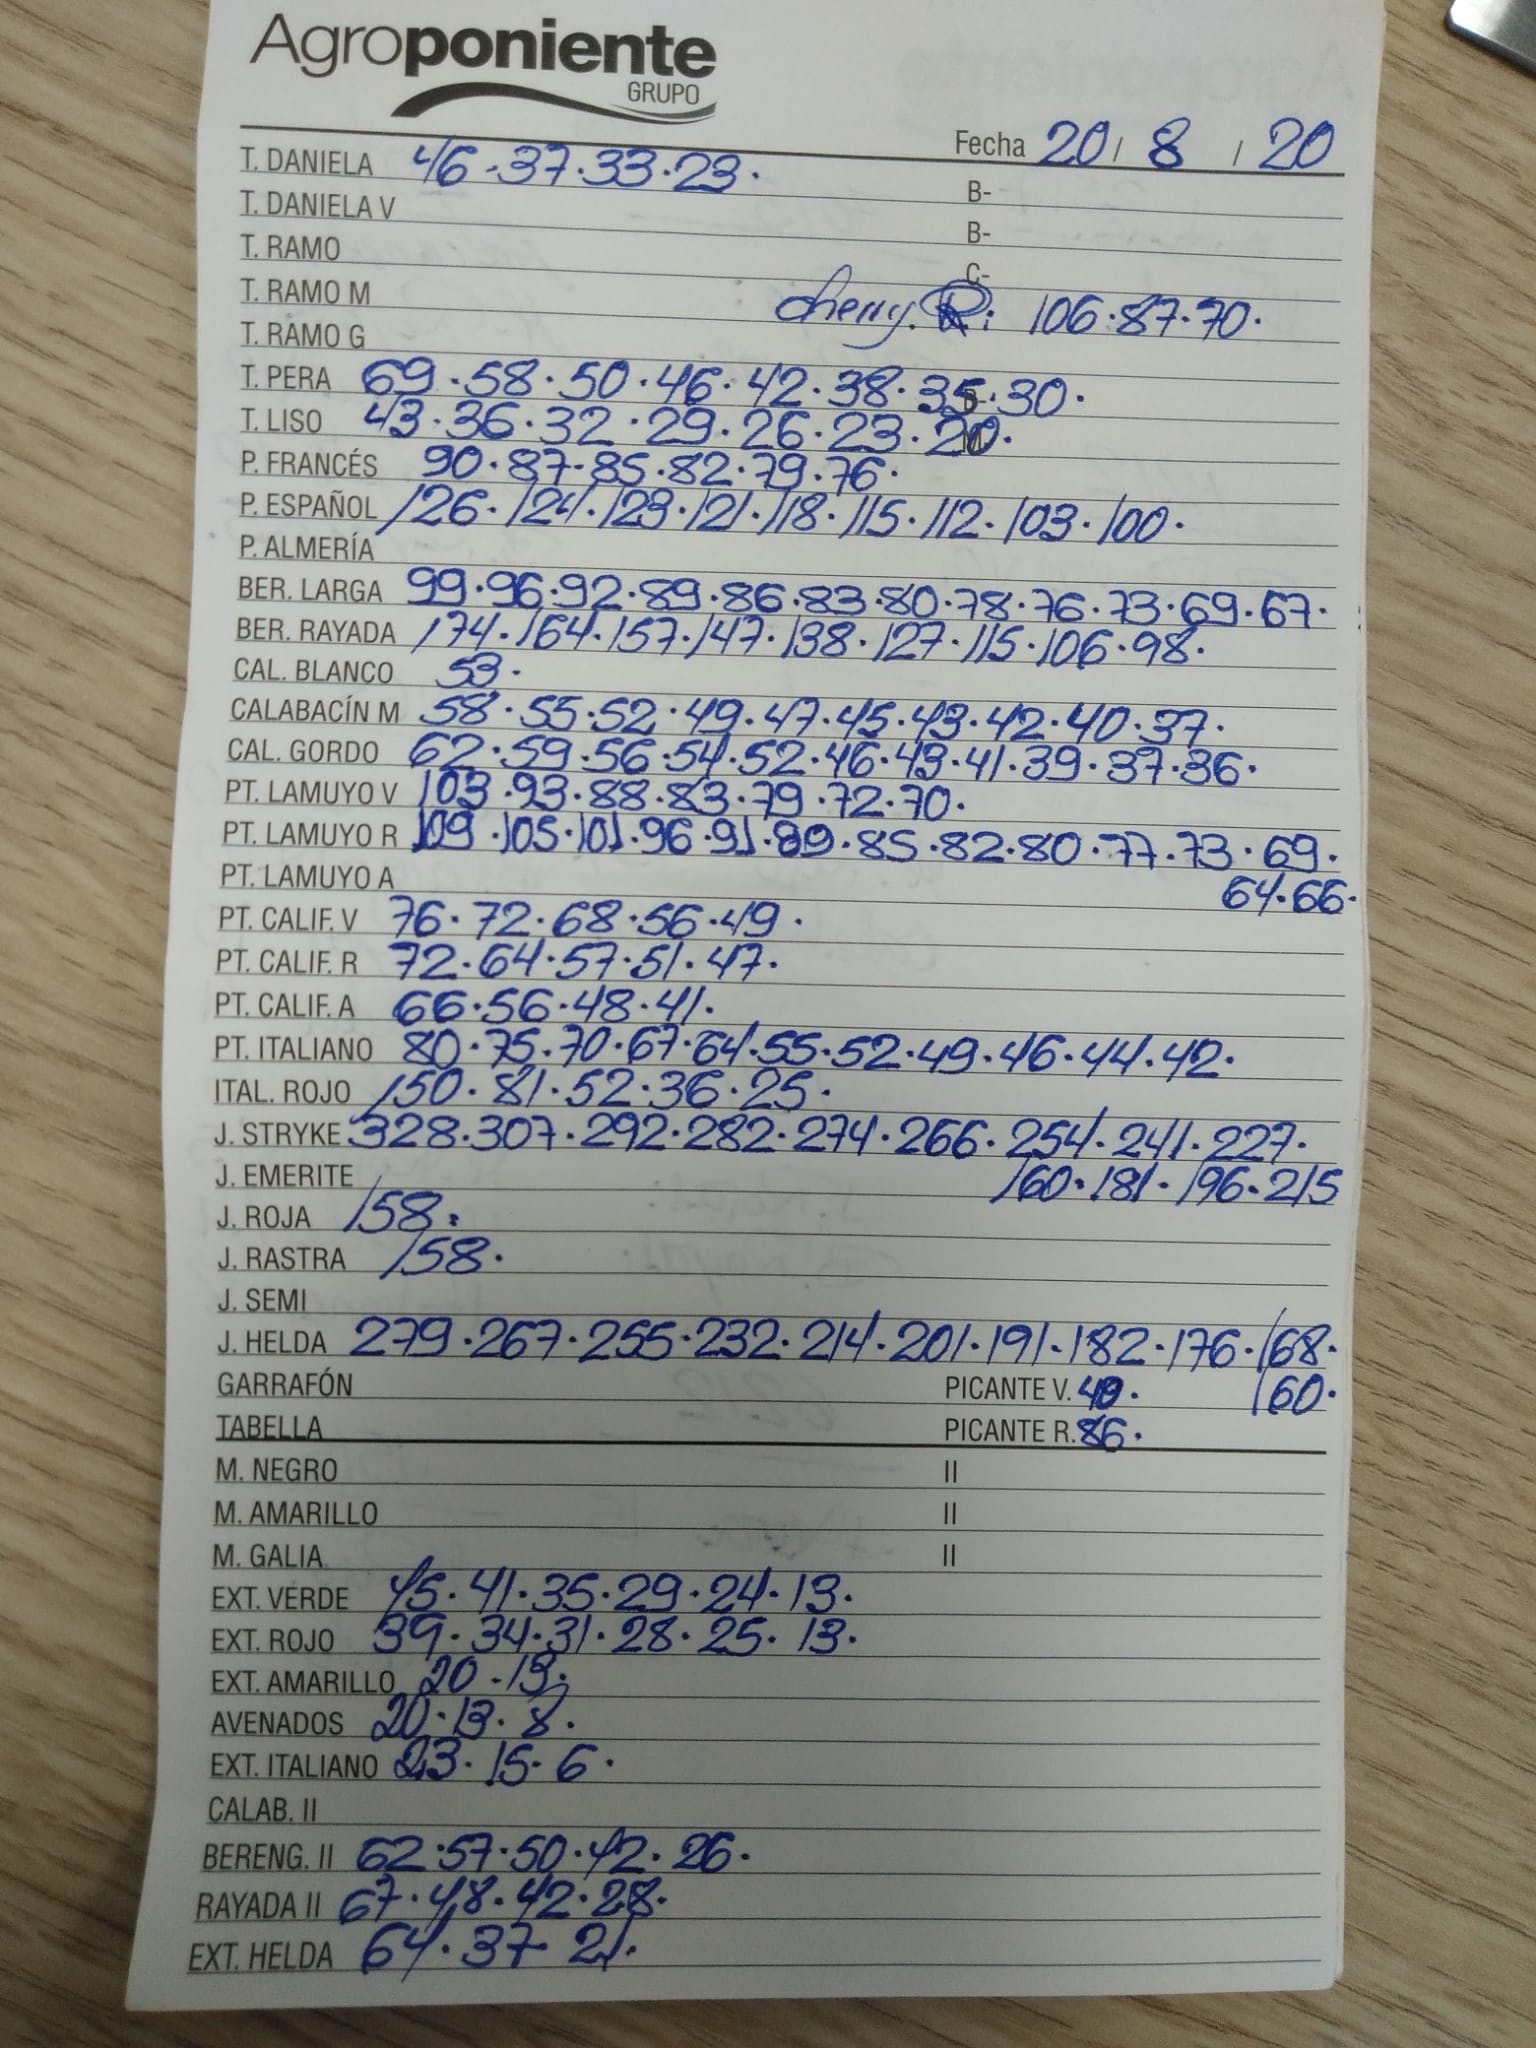 Agroponiente
GRUPO
Fecha 20 / 8 / 20
T. DANIELA 46 - 37 · 33 · 23 · B-
T. DANIELA V B-
T. RAMO C-
T. RAMO M cherry. R: 106 · 87 · 70 ·
T. RAMO G
T. PERA 69 · 58 · 50 · 46 · 42 · 38 · 35 · 30 ·
T. LISO 43 · 36 · 32 · 29 · 26 · 23 · 20 ·
P. FRANCÉS 90 · 87 · 85 · 82 · 79 · 76 ·
P. ESPAÑOL 126 · 124 · 123 · 121 · 118 · 115 · 112 · 103 · 100 ·
P. ALMERÍA
BER. LARGA 99 · 96 · 92 · 89 · 86 · 83 · 80 · 78 · 76 · 73 · 69 · 67 ·
BER. RAYADA 174 · 164 · 157 · 147 · 138 · 127 · 115 · 106 · 98 ·
CAL. BLANCO 53 ·
CALABACÍN M 58 · 55 · 52 · 49 · 47 · 45 · 43 · 42 · 40 · 37 ·
CAL. GORDO 62 · 59 · 56 · 54 · 52 · 46 · 43 · 41 · 39 · 37 · 36 ·
PT. LAMUYO V 103 · 93 · 88 · 83 · 79 · 72 · 70 ·
PT. LAMUYO R 109 · 105 · 101 · 96 · 91 · 89 · 85 · 82 · 80 · 77 · 73 · 69 ·
PT. LAMUYO A 64 · 66 ·
PT. CALIF. V 76 · 72 · 68 · 56 · 49 ·
PT. CALIF. R 72 · 64 · 57 · 51 · 47 ·
PT. CALIF. A 66 · 56 · 48 · 41 ·
PT. ITALIANO 80 · 75 · 70 · 67 · 64 · 55 · 52 · 49 · 46 · 44 · 42 ·
ITAL. ROJO 150 · 81 · 52 · 36 · 25 ·
J. STRYKE 328 · 307 · 292 · 282 · 274 · 266 · 254 · 241 · 227 ·
J. EMERITE 160 · 181 · 196 · 215
J. ROJA 158 ·
J. RASTRA 158 ·
J. SEMI
J. HELDA 279 · 267 · 255 · 232 · 214 · 201 · 191 · 182 · 176 · 168 ·
GARRAFÓN PICANTE V. 40 · 160 ·
TABELLA PICANTE R. 86 ·
M. NEGRO II
M. AMARILLO II
M. GALIA II
EXT. VERDE 45 · 41 · 35 · 29 · 24 · 13 ·
EXT. ROJO 39 · 34 · 31 · 28 · 25 · 13 ·
EXT. AMARILLO 20 · 13 ·
AVENADOS 20 · 13 · 8 ·
EXT. ITALIANO 23 · 15 · 6 ·
CALAB. II
BERENG. II 62 · 57 · 50 · 42 · 26 ·
RAYADA II 67 · 48 · 42 · 28 ·
EXT. HELDA 64 · 37 · 21 ·